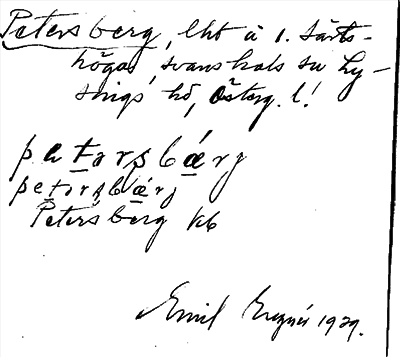 Petersberg, lht å 1. Särts-
höga, svanshals sn Ly-
sings hd, Österg. l!
petərsbǽrj
petərsbǽrj
Petersberg kb
Emil 1929.